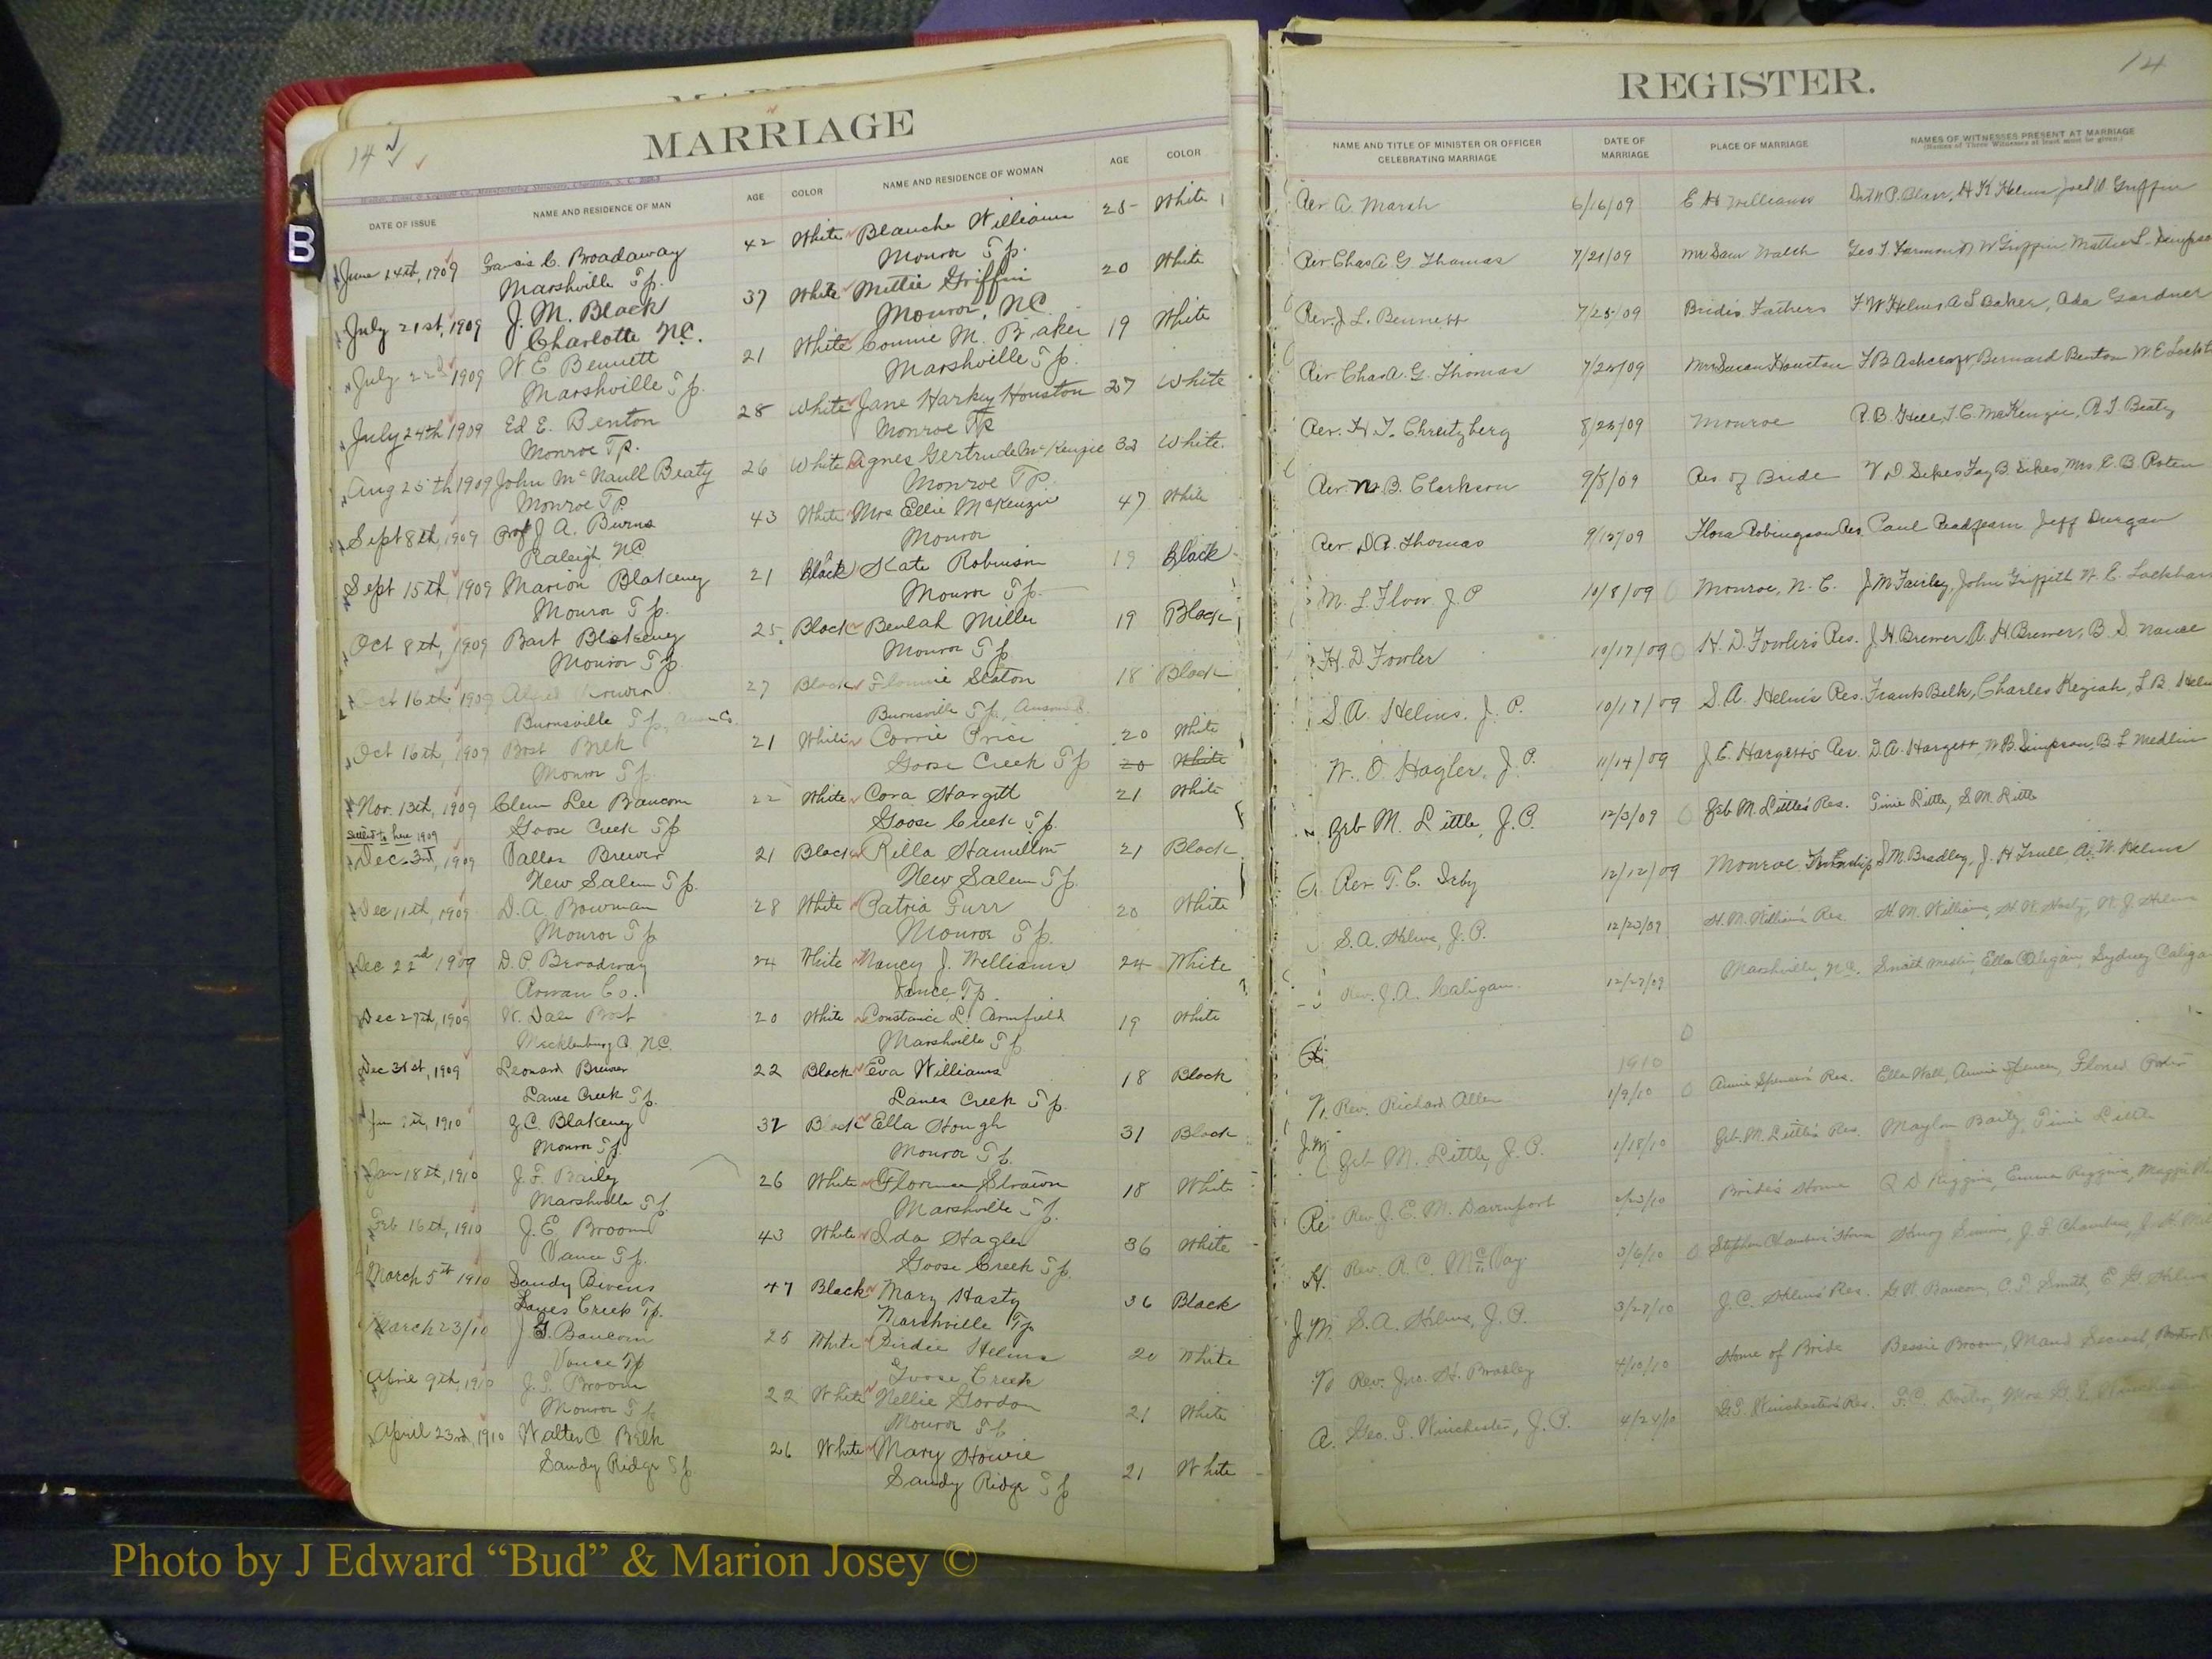 14
MARRIAGE
DATE OF ISSUE NAME AND RESIDENCE OF MAN AGE COLOR NAME AND RESIDENCE OF WOMAN AGE COLOR
June 14th, 1909 Francis C. Broadaway 42 White Blanche Williams 25 White
Marshville Tp. Monroe Tp.
July 21st, 1909 J. M. Black 37 White Mittie Griffin 20 White
Charlotte NC. Monroe, NC
July 22d 1909 W E Bennett 21 White Connie M. Baker 19 White
Marshville Tp. Marshville Tp.
July 24th 1909 Ed E. Benton 28 White Jane Harkey Houston 27 White
Monroe Tp. Monroe Tp
Aug 25th 1909 John McNaull Beaty 26 White Agnes Gertrude McKenzie 32 White.
Monroe TP Monroe TP.
Sept 8th, 1909 Prof J A. Burns 43 White Mrs Ellie McKenzie 47 White
Raleigh NC Monroe
Sept 15th, 1909 Marion Blakeney 21 Black Kate Robinson 19 Black
Monroe Tp. Monroe Tp.
Oct 8th, 1909 Bart Blakeney 25 Black Beulah Miller 19 Black
Monroe Tp. Monroe Tp
Oct 16th 1909 27 Black Seaton 18 Black
Burnsville Tp, Anson Co. Burnsville Tp, Anson
Oct 16th, 1909 Belk 21 White Corrie Price 20 White
Monroe Tp. Goose Creek Tp 20 White
Nov. 13th, 1909 Clem Lee Baucom 22 White Cora Hargett 21 White
Goose Creek Tp Goose Creek Tp.
Settled to here 1909
Dec. 3rd, 1909 Dallas Brewer 21 Black Rella Hamilton 21 Black
New Salem Tp. New Salem Tp.
Dec 11th, 1909 D. A. Bowman 28 White Furr 20 White
Monroe Tp Monroe Tp.
Dec 22nd 1909 D. P. Broadway 24 White Nancy J. Williams 24 White
Rowan Co. Vance Tp.
Dec 27th, 1909 W. Dale Bost 20 White Constance L. Armfield 19 White
Mecklenburg Co NC. Marshville Tp
Dec 31st, 1909 Leonard Brewer 22 Black Eva Williams 18 Black
Lanes Creek Tp. Lanes Creek Tp.
1910 Z. C. Blakeney 32 Black Ella Hough 31 Black
Monroe Tp. Monroe Tp.
Jan 18th, 1910 J. F. Baily 26 White Florence Strawn 18 White
Marshville Tp. Marshville Tp.
Feb 16th, 1910 J. E. Broom 43 White Ida Hagler 36 White
Vance Tp. Goose Creek Tp.
March 5th 1910 Sandy Bivens 47 Black Mary Hasty 36 Black
Lanes Creek Tp. Marshville Tp
March 23/10 J G. Baucom 25 White Birdie Helms 20 White
Vance Tp Goose Creek
April 9th, 1910 J. S. Broom 22 White Nellie Gordon 21 White
Monroe Tp Monroe Tp
April 23rd, 1910 Walter C. Belk 26 White Mary Howie 21 White
Sandy Ridge Tp Sandy Ridge Tp
REGISTER.
14
NAME AND TITLE OF MINISTER OR OFFICER CELEBRATING MARRIAGE DATE OF MARRIAGE PLACE OF MARRIAGE NAMES OF WITNESSES PRESENT AT MARRIAGE
(Names of Three Witnesses at least must be given.)
Rev A. Marsh 6/16/09 E H Williams P. Blair, H K Helms Joel W Griffin
Rev Chas A. G Thomas 7/21/09 Mr Sam Walsh Geo T. W Griffin, Mattie L. Simpson
Rev. J L. Bennett 7/25/09 Bride's Fathers F W Helms A S Baker, Ada Gardner
Rev Chas A. G. Thomas 7/24/09 Mrs Susan Houston F B Ashcraft, Bernard Benton W. E
Rev. H. T. Chreitzberg 8/25/09 Monroe R. B. Hill, T. C. McKenzie, R. T. Beaty
Rev. W. B. Clarkson 9/8/09 Res. of Bride V. D. Sikes Fay B Sikes, Mrs. E. B.
Rev. D. R. Thomas 9/15/09 Flora Robingson Res. Paul Jeff Durgan
M. L. Flow J. P 10/8/09 Monroe, N. C. J M Fairley, John Griffith W. E. Lockhart
H. D. Fowler 10/17/09 H. D. Fowler's Res. J H. Brewer, A. H Brewer, B. D Nance
S. A. Helms. J. P. 10/17/09 S. A. Helms Res. Frank Belk, Charles Keziah, L. B. Helms
W. O. Hagler, J. P. 11/14/09 J. E. Hargett's Res. D. A. Hargett, W. B. Simpson, B. L Medlin
Zeb M. Little, J. P. 12/3/09 Zeb M. Little's Res. Tinie Little, S. M. Little
Rev. T. C. 12/12/09 Monroe Township S M. Bradley, J. H Trull, A. W. Helms
S. A. Helms, J. P. 12/23/09 H. M. William's Res. H. M. Williams, H. W. Hasty, W. J Helms
Rev. J. A. Caligan. 12/27/09 Marshville, N.C. Ella Caligan, Sydney Caligan
1910
Rev. Richard Allen 1/9/10 Annie Spencer's Res. Ella Wall, Annie Spencer,
Zeb M. Little, J. P. 1/18/10 Zeb. M. Little's Res. Baity, Tinie Little
Rev. J. E. M. Davenport 2/23/10 Bride's Home Q D Riggins, Emma Riggins, Maggie
Rev. R. C. McCoy. 3/6/10 Stephen Chambers Home J. L Chambers,
S. A. Helms, J. P. 3/27/10 J. C. Helms' Res. G. W. Baucom, C. T. Smith, E. G. Helms
Rev. Jno. H. Bradley 4/10/10 Home of Bride Bessie Broom, Maud Secrest,
Geo. T. Winchester, J. P. 4/24/10 G. T. Winchester's Res. F. C. Mrs. G. T. Winchester
B
Photo by J Edward “Bud” & Marion Josey ©